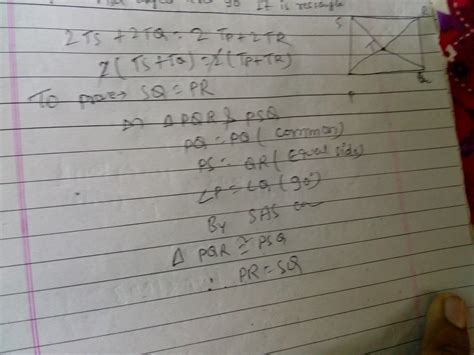 It is rectangle
2TS + 2TQ = 2TP + 2TR
2(TS + TQ) = 2(TP + TR)
To prove → SQ = PR
In ΔPQR & PSQ
PQ = PQ (common)
PS = QR (equal side)
∠P = ∠Q (90°)
By SAS
Δ PQR ≅ PSQ
∴ PR = SQ
S
R
T
P
Q